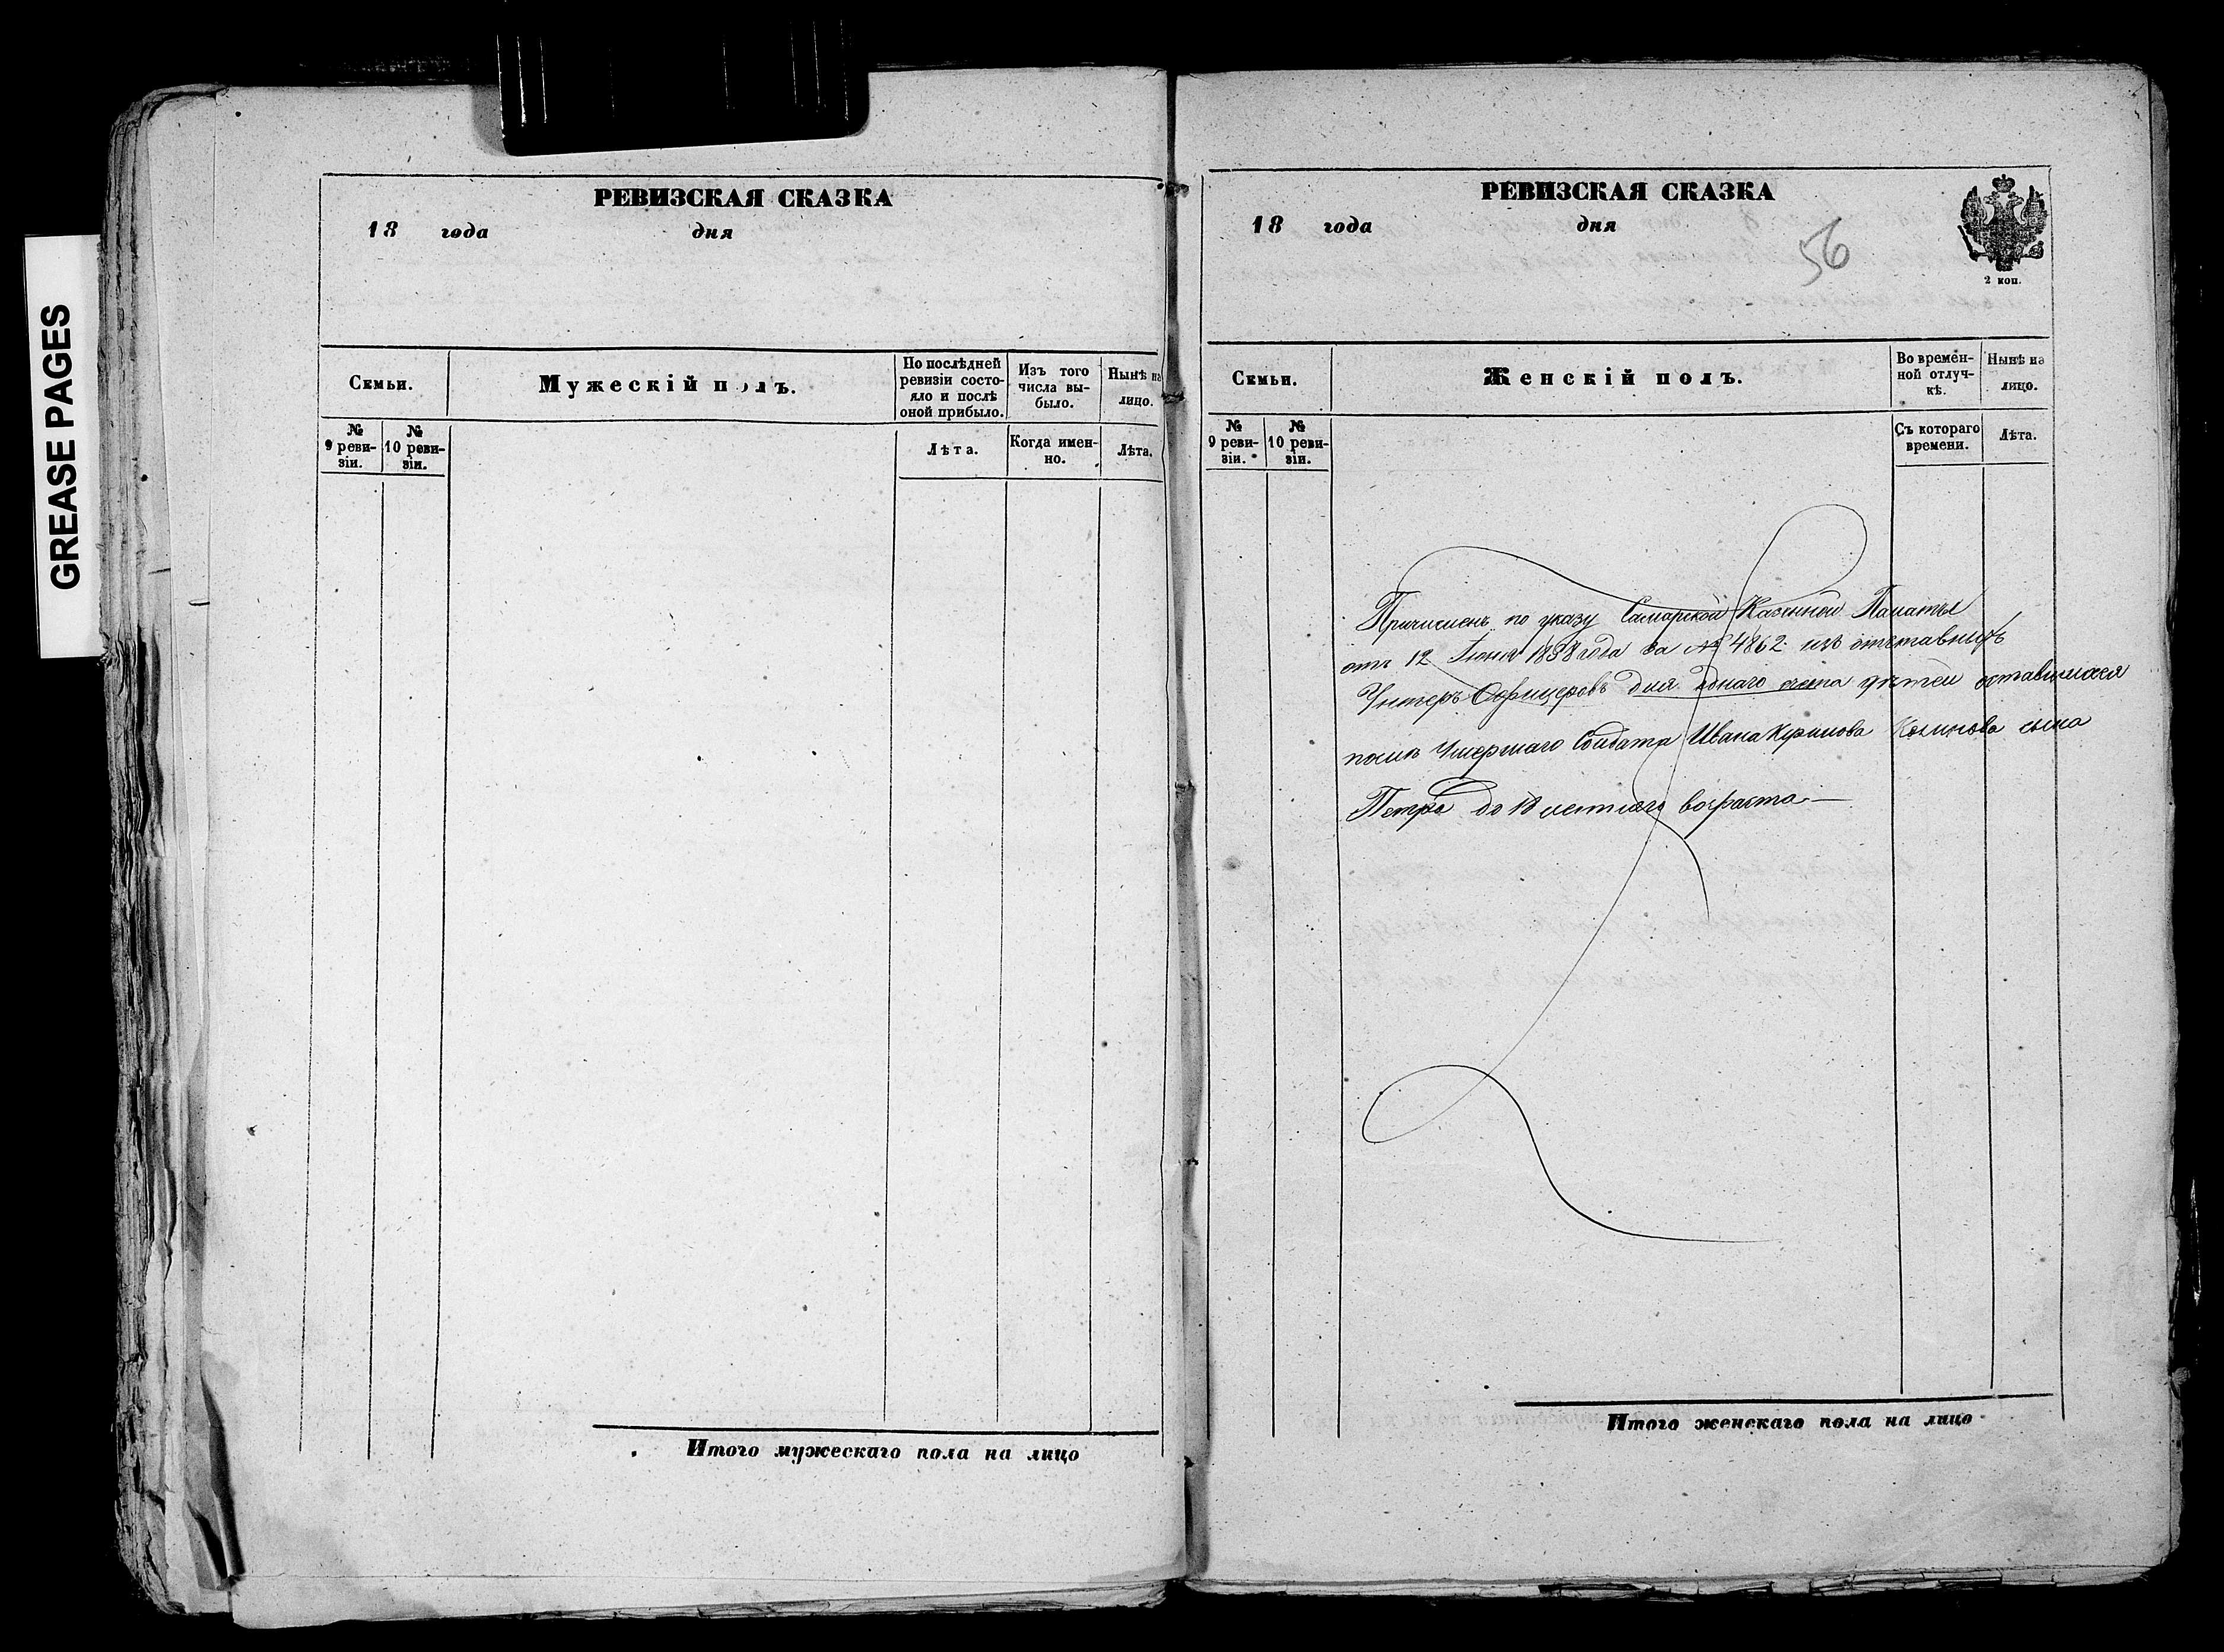 GREASE PAGES
РЕВИЗСКАЯ СКАЗКА
18 года дня
Семьи.
Мужескій полъ.
По послѣдней ревизіи состояло и послѣ оной прибыло.
Изъ того числа выбыло.
Нынѣ на лицо.
№ 9 ревизіи.
№ 10 ревизіи.
Лѣта.
Когда именно.
Лѣта.
Итого мужескаго пола на лицо
РЕВИЗСКАЯ СКАЗКА
18 года дня
56
2 коп.
Семьи.
Женскій полъ.
Во временной отлучкѣ.
Нынѣ на лицо.
№ 9 ревизіи.
№ 10 ревизіи.
Съ котораго времени.
Лѣта.
Причисленъ по указу Самарской Казенной Палаты
отъ 12 Іюня 1858 года за № 4862 изъ отставныхъ
Унтеръ Офицеровъ для однаго счета дѣтей оставшихся
послѣ Умершаго Солдата Ивана сына
Петра до 18 летняго возраста
Итого женскаго пола на лицо